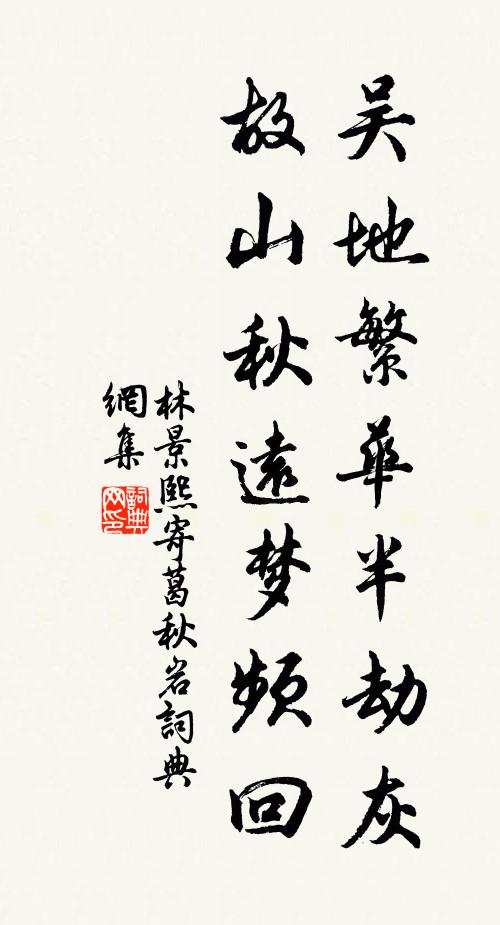 吴地繁華半劫灰
故山秋遠梦频回
林景熙寄葛秋岩詞典
網集
詞典
网印